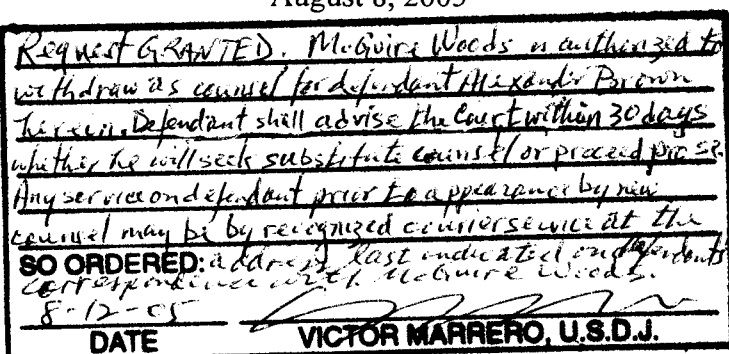 August 8, 2005
Request GRANTED. McGuire Woods is authorized to
withdraw as counsel for defendant Alexander Brown
herein. Defendant shall advise the Court within 30 days
whether he will seek substitute counsel or proceed pro se.
Any service on defendant prior to appearance by new
counsel may be by recognized courier service at the
SO ORDERED: address last indicated on defendant's
correspondence with McGuire Woods.
8-12-05
DATE VICTOR MARRERO, U.S.D.J.